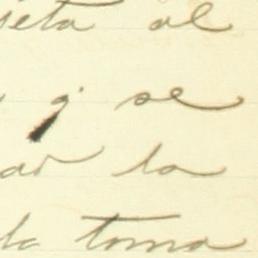 seta al
q. se
ad la
la toma